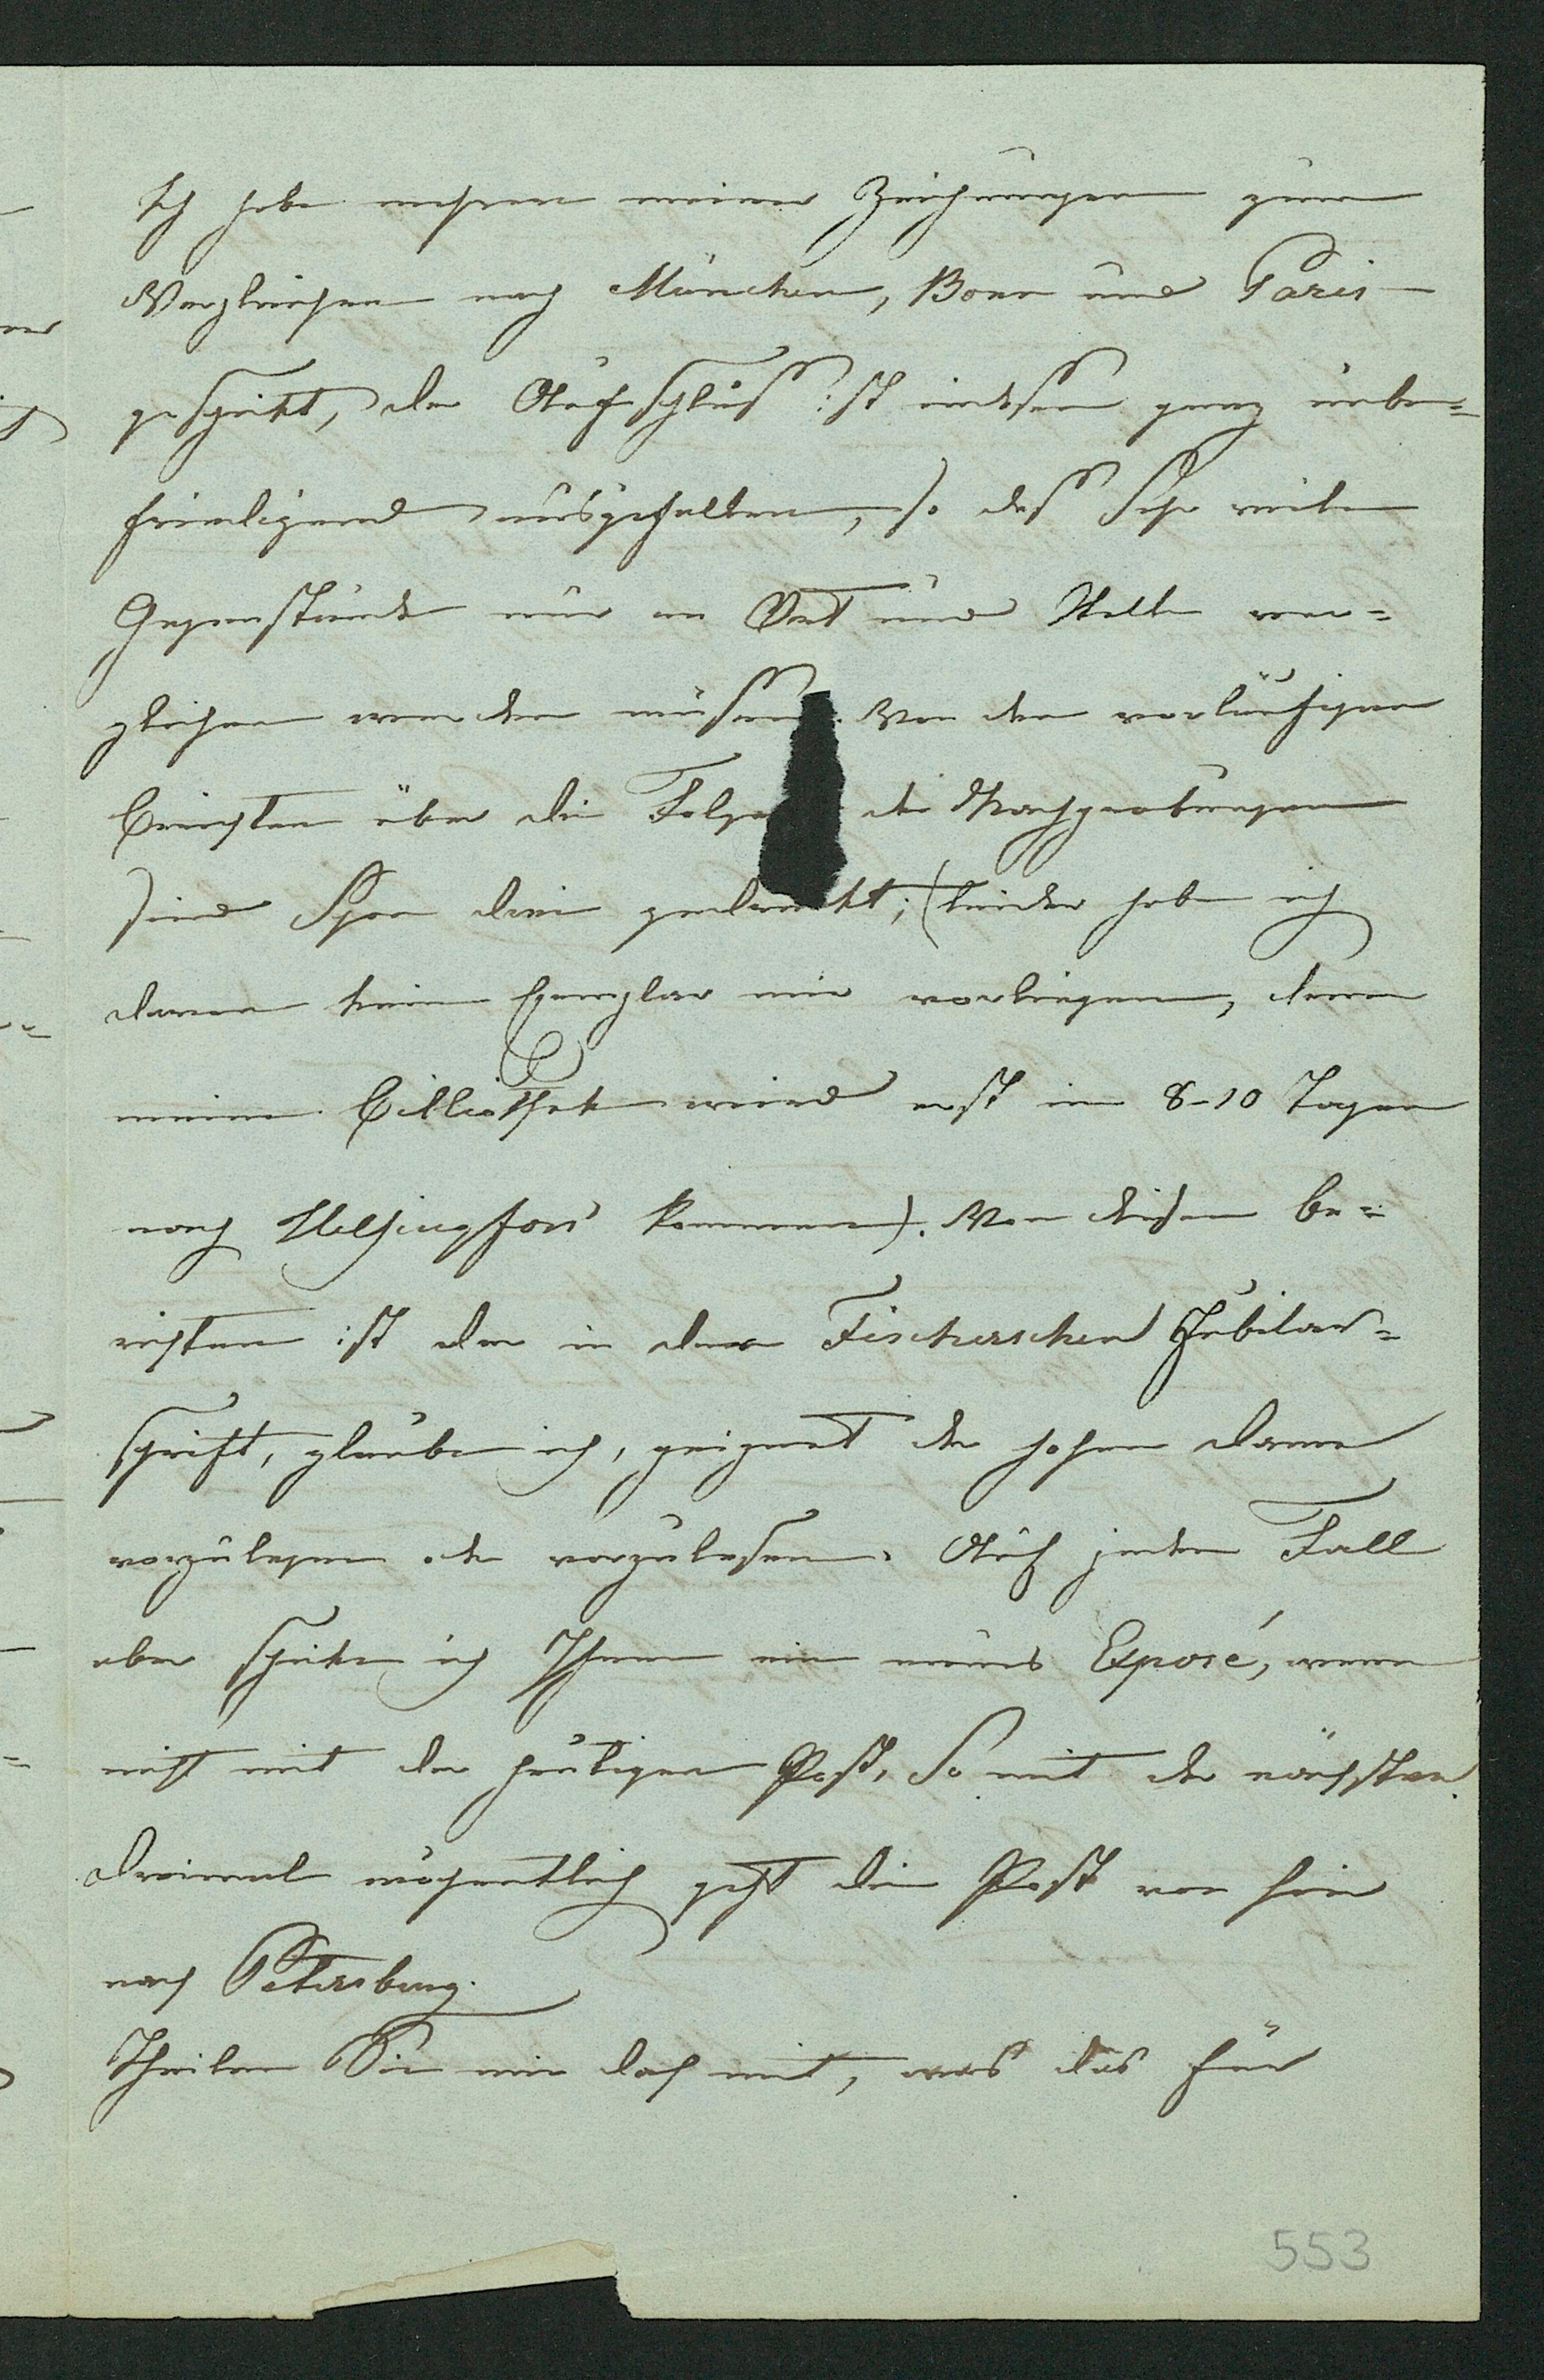 Ich habe mehrere meiner Zeichnungen zum
Vergleichen nach München, Bonn und Paris
geschickt, der Aufschluß ist indessen ganz unbe=
friedigend ausgefallen, so daß sehr viele
Gegenstände nur an Ort und Stelle ver=
glichen werden müssen. Von den vorläufigen
Berichten über die Folgen der Nachgrabungen
sind schon drei gedruckt; (leider habe ich
davon kein Exemplar mir vorliegen, denn
meine Bibliothek wird erst in 8-10 Tagen
nach Helsingfors kommen). Von diesen be=
richten ist der in der Fischerschen Jubilar=
schrift, glaube ich, geignet der hohen Dame
vorzulegen oder vorzulesen. Auf jeden Fall
aber schicke ich Ihnen ein neues Exposé, wenn
nicht mit der heutigen Post, so mit der nächsten.
Dreimal wöchentlich geht die Post von hier
nach Petersburg.
Theilen Sie mir doch mit, was das für
553